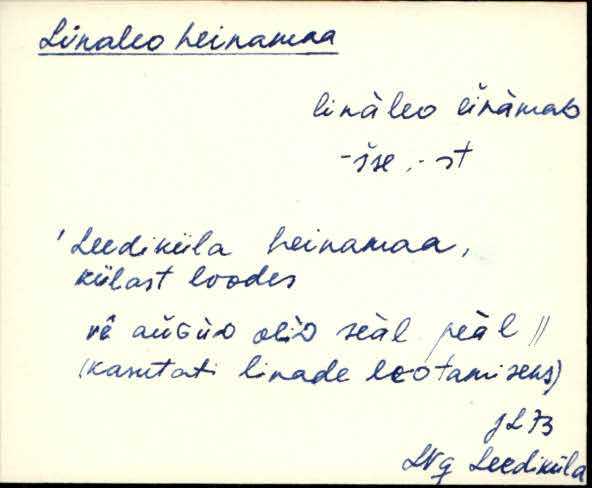 Linaleo heinamaa
linàleo èinàmaᴅ
-šse, -st
'Leediküla heinamaa,
külast loodes
vê aùɢùᴅ olìᴅ seàl peàl //
(kasutati linade leotamiseks)
JL73
LNg Leediküla